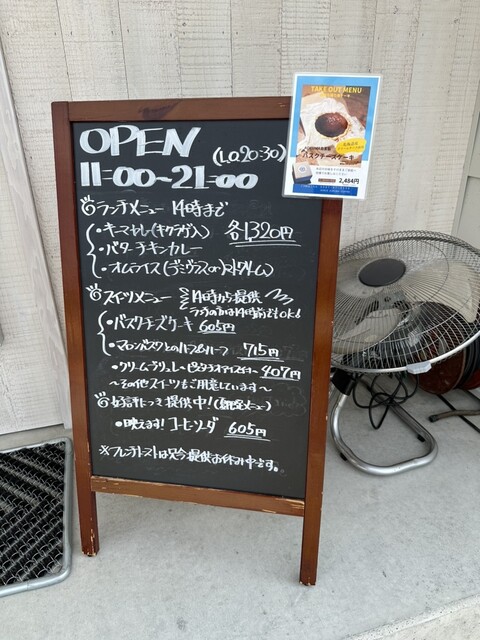 OPEN
(L.O.20:30)
11:00~21:00
ランチメニュー 14時まで
・キーマカレー(キクラゲ入)
各1,320円
・バターチキンカレー
・オムライス(デミグラスor
スイーツメニュー
14時から提供
・バスクチーズケーキ 605円
・マロンバスクとのハーフ&ハーフ 715円
・クリームブリュレ 407円
~その他スイーツもご用意しています~
好評につき提供中!
・映えます! コーヒーソーダ 605円
※フレンチトーストは只今提供お休み中です。
TAKE OUT MENU
バスクチーズケーキ
2,484円